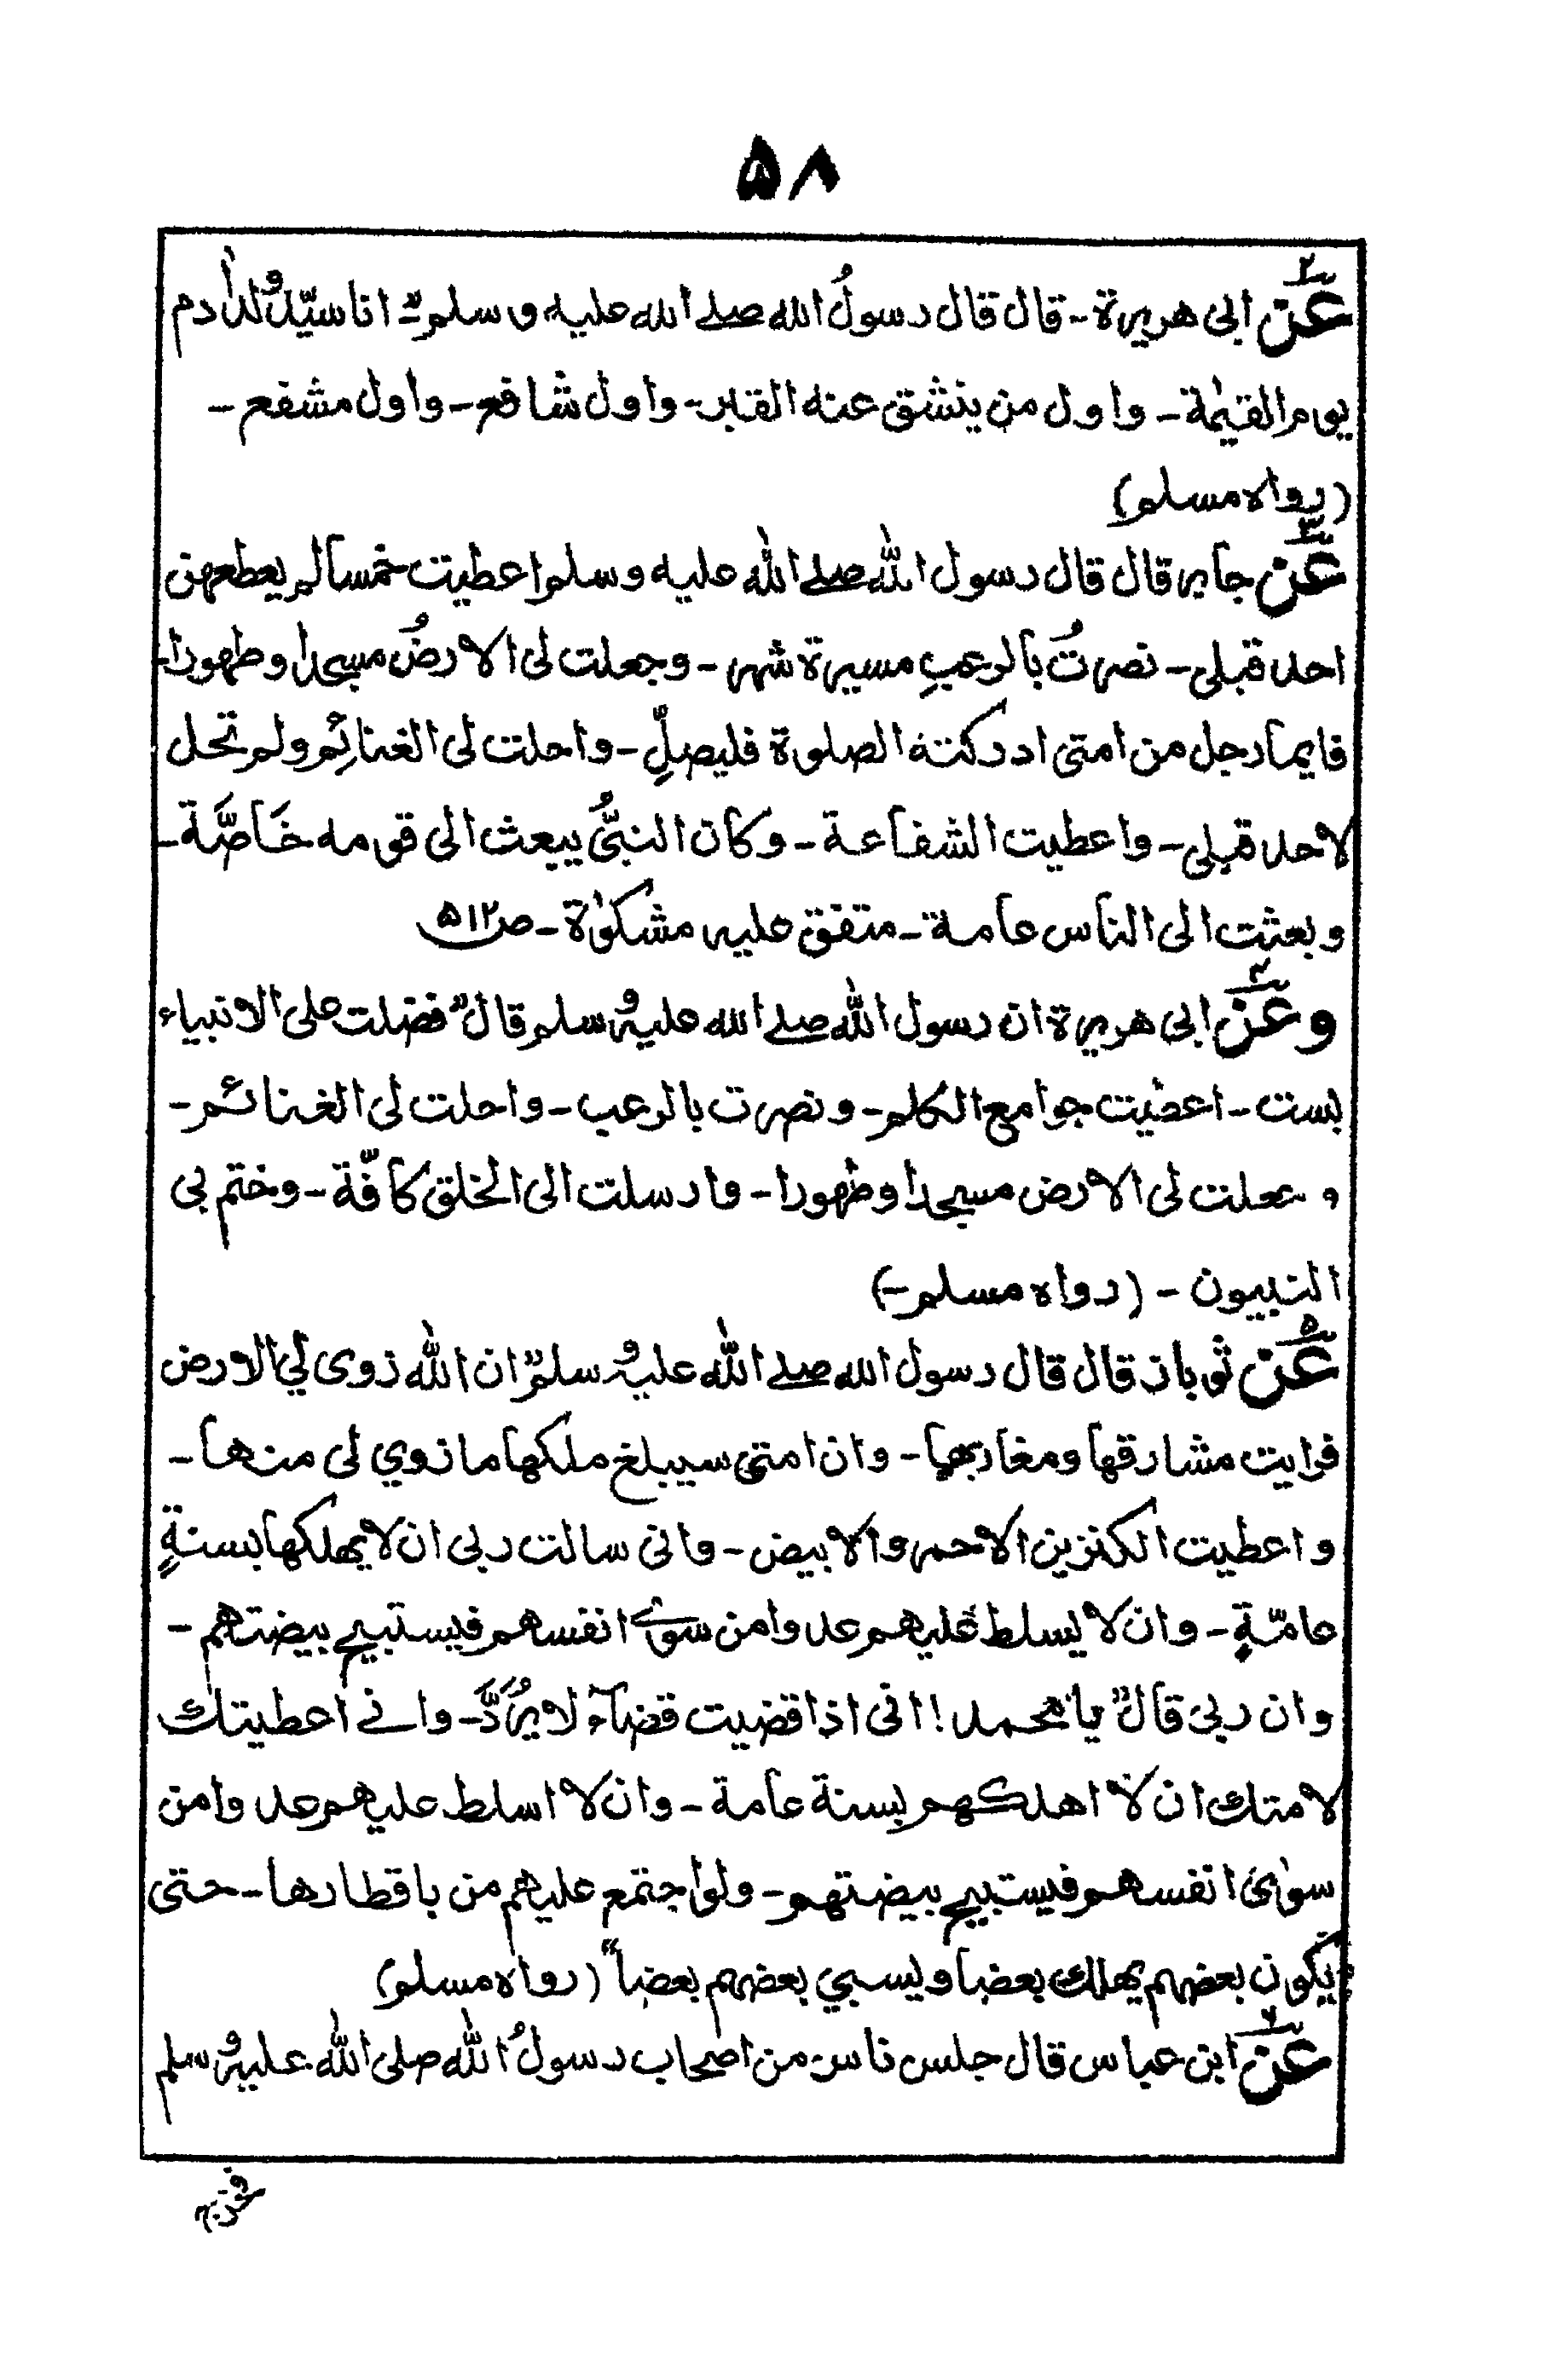 ۵۸
۲؎
عَنْ ابی هریرة - قال قال رسولُ الله صلے الله علیه و سلم " انا سیّدُ ولداٰدم
یوم القیٰمة - واول من ینشق عنه القبر - واول شافع - واول مشفع -
(رواه مسلم)
۳؎
عَنْ جابر قال قال رسول اللّٰه صلے اللّٰه علیه وسلم اعطیت خمسا لم یعطهن
احد قبلی - نصرتُ بالرعبِ مسیرة شهر - وجعلت لی الارضُ مسجدا وطهورا -
فایما رجل من امتی ادرکته الصلوة فلیصلِّ - واحلت لی الغنائِم ولم تحل
لاحد قبلی - واعطیت الشفاعة - وکان النبیُّ یبعث الی قومه خَاصَّة -
وبعثت الی الناس عامة - متفق علیه مشکوٰة - ص۵۱۲
۴؎
وعَنْ ابی هریرة ان رسول اللّٰه صلے الله علیه وسلم قال " فضلت علی الانبیاء
بست - اعطیت جوامع الکلم - ونصرت بالرعب - واحلت لی الغنائم -
و جعلت لی الارض مسجدا وطهورا - وارسلت الی الخلق کافّة - وختم بی
النبیون - (رواه مسلم -)
۵؎
عَنْ ثوبان قال قال رسول الله صلے اللّٰه علیه وسلم " ان اللّٰه زوی لی الارض
فرایت مشارقها ومغاربها - وان امتی سیبلغ ملکها ما زوی لی منها -
واعطیت الکنزین الاحمر والابیض - وانی سالت ربی ان لا یهلکها بسنةٍ
عامّةٍ - وان لا یسلط علیهم عدوا من سویٰ انفسهم فیستبیح بیضتهم -
وان ربی قال " یا محمد! انی اذا قضیت قضآءً لا یُرَدَّ - وانے اعطیتك
لامتك ان لا اهلکهم بسنة عامة - وان لا اسلط علیهم عدوا من
سوٰی انفسهم فیستبیح بیضتهم - ولو اجتمع علیهم من باقطارها - حتی
یکون بعضهم یهلك بعضا ویسبی بعضهم بعضاً " (رواه مسلم)
۶؎
عَنْ ابن عباس قال جلس ناس من اصحاب رسولُ اللّٰه صلی اللّٰه علیه وسلم
فخرج